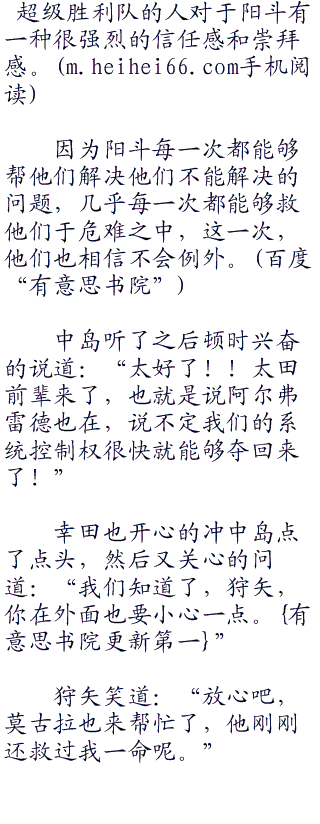 超级胜利队的人对于阳斗有
一种很强烈的信任感和崇拜
感。(m.heihei66.com手机阅
读)
因为阳斗每一次都能够
帮他们解决他们不能解决的
问题，几乎每一次都能够救
他们于危难之中，这一次，
他们也相信不会例外。(百度
“有意思书院”)
中岛听了之后顿时兴奋
的说道：“太好了！！太田
前辈来了，也就是说阿尔弗
雷德也在，说不定我们的系
统控制权很快就能够夺回来
了！”
幸田也开心的冲中岛点
了点头，然后又关心的问
道：“我们知道了，狩矢，
你在外面也要小心一点。{有
意思书院更新第一}”
狩矢笑道：“放心吧，
莫古拉也来帮忙了，他刚刚
还救过我一命呢。”